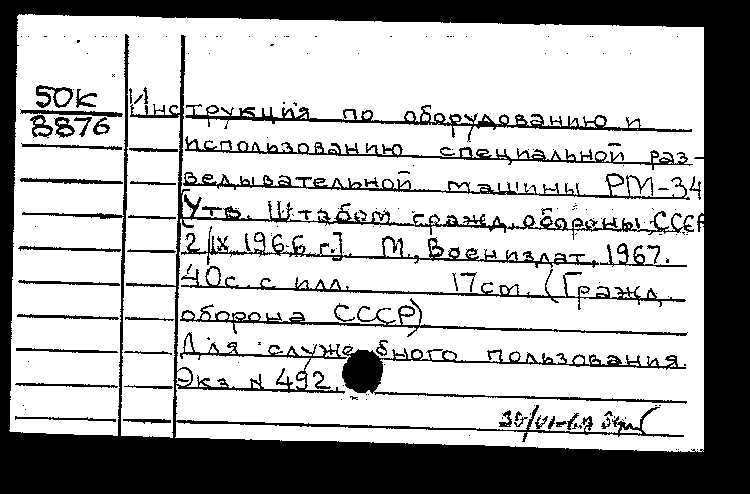 50К
8876
Инструкция по оборудованию и
использованию специальной раз-
ведывательной машины РМ-34
[Утв. Штабом гражд. обороны СССР
2/IX 1966 г.]. М., Воениздат, 1967.
40с. с илл. 17см. (Гражд.
оборона СССР)
Для служебного пользования.
Экз. N 492.